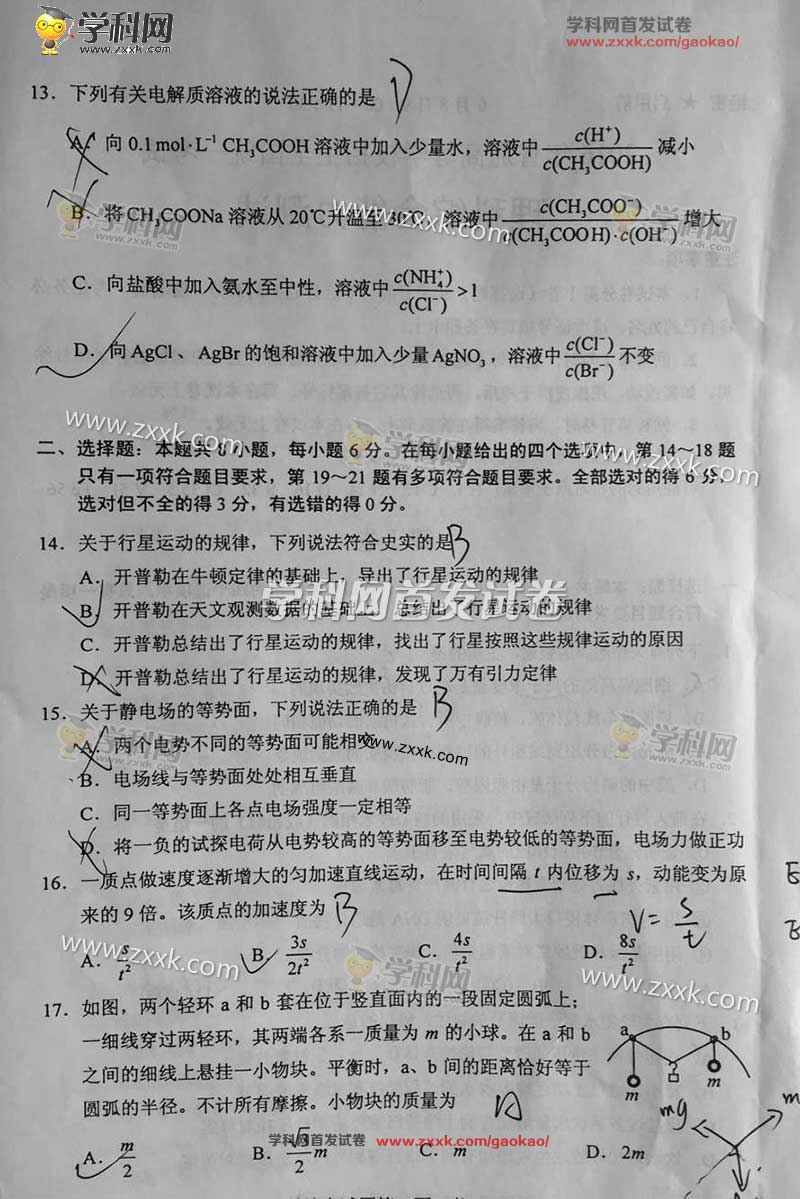 学科网
www.zxxk.com
学科网首发试卷
www.zxxk.com/gaokao/
13. 下列有关电解质溶液的说法正确的是 D
A. 向 0.1 mol·L⁻¹ CH₃COOH 溶液中加入少量水，溶液中 c(H⁺)/c(CH₃COOH) 减小
B. 将CH₃COONa 溶液从20℃升温至30℃，溶液中 c(CH₃COO⁻)/c(CH₃COOH)·c(OH⁻) 增大
学科网
zxxk.com
学科网
zxxk.com
C. 向盐酸中加入氨水至中性，溶液中 c(NH₄⁺)/c(Cl⁻) >1
D. 向 AgCl、AgBr 的饱和溶液中加入少量 AgNO₃，溶液中 c(Cl⁻)/c(Br⁻) 不变
www.zxxk.com
学科网
zxxk.com
www.zxxk.com
二、选择题：本题共 8 小题，每小题 6 分。在每小题给出的四个选项中，第 14～18 题
只有一项符合题目要求，第 19～21 题有多项符合题目要求。全部选对的得 6 分，
选对但不全的得 3 分，有选错的得 0 分。
14. 关于行星运动的规律，下列说法符合史实的是 B
A. 开普勒在牛顿定律的基础上，导出了行星运动的规律
学科网首发试卷
B. 开普勒在天文观测数据的基础上，总结出了行星运动的规律
C. 开普勒总结出了行星运动的规律，找出了行星按照这些规律运动的原因
D. 开普勒总结出了行星运动的规律，发现了万有引力定律
15. 关于静电场的等势面，下列说法正确的是 B
学科网
zxxk.com
学科网
zxxk.com
A. 两个电势不同的等势面可能相交
www.zxxk.com
B. 电场线与等势面处处相互垂直
C. 同一等势面上各点电场强度一定相等
D. 将一负的试探电荷从电势较高的等势面移至电势较低的等势面，电场力做正功
16. 一质点做速度逐渐增大的匀加速直线运动，在时间间隔 t 内位移为 s，动能变为原
来的 9 倍。该质点的加速度为 B
V = s/t
www.zxxk.com
A. s/t² B. 3s/2t² C. 4s/t² D. 8s/t²
学科网
zxxk.com
www.zxxk.com
17. 如图，两个轻环 a 和 b 套在位于竖直面内的一段固定圆弧上；
一细线穿过两轻环，其两端各系一质量为 m 的小球。在 a 和 b
之间的细线上悬挂一小物块。平衡时，a、b 间的距离恰好等于
圆弧的半径。不计所有摩擦。小物块的质量为 A
a b
m m
mg
学科网首发试卷 www.zxxk.com/gaokao/
A. m/2 B. √3/2 m C. m D. 2m